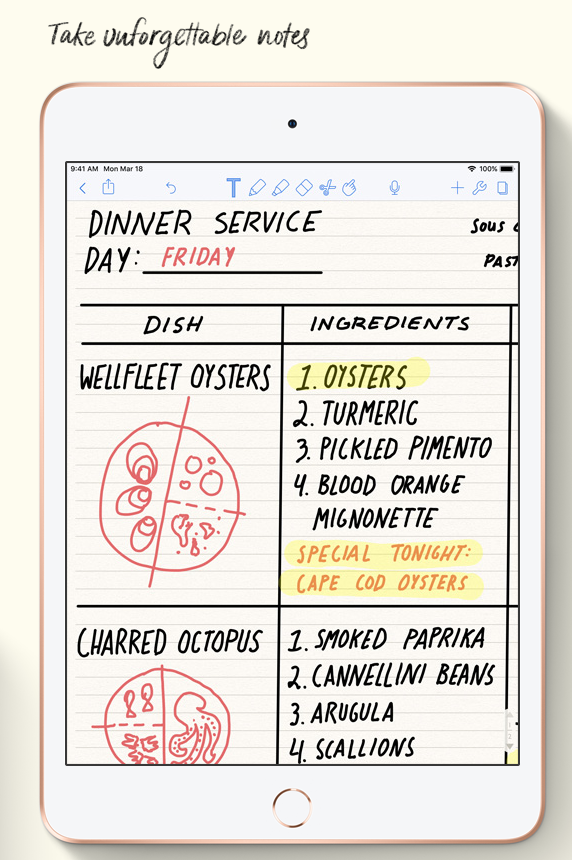 Take unforgettable notes
9:41 AM Mon Mar 18
100%
DINNER SERVICE
DAY: FRIDAY
DISH
INGREDIENTS
WELLFLEET OYSTERS
1. OYSTERS
2. TURMERIC
3. PICKLED PIMENTO
4. BLOOD ORANGE
MIGNONETTE
SPECIAL TONIGHT:
CAPE COD OYSTERS
CHARRED OCTOPUS
1. SMOKED PAPRIKA
2. CANNELLINI BEANS
3. ARUGULA
4. SCALLIONS